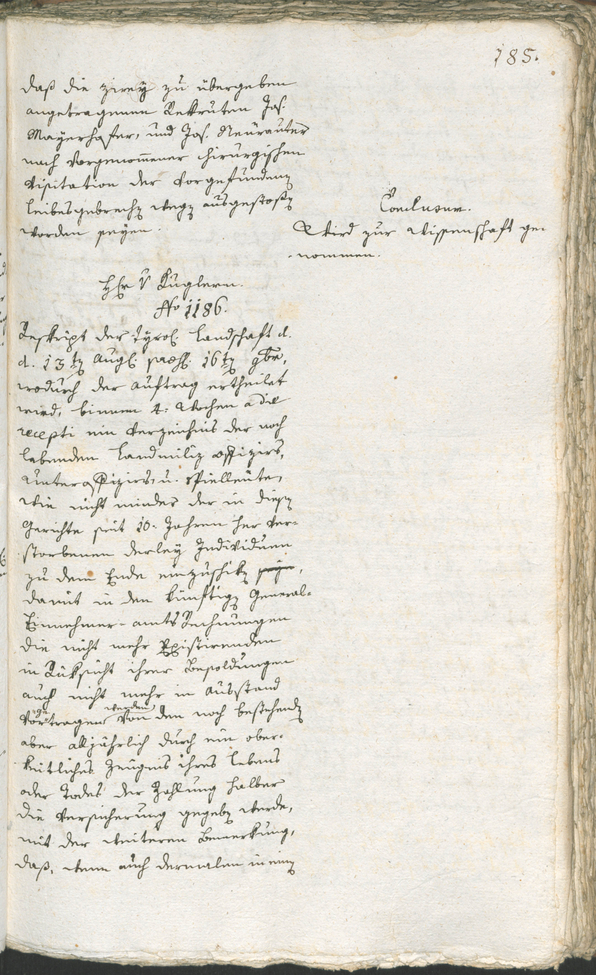 185.
daß die zwey zu übergeben
angetragenen Rekruten Jos.
Mayerhofer, und Jos. Neurauter
nach vorgenommener chirurgischen
Visitation der vorgefundenen
Leibsgebrechen wegen ausgestossen
worden seyen.
Conclusum.
Wird zur Wissenschaft ge-
nommen.
Hr. v Kuglern.
No 1186.
Reskript der Tyrol. Landschaft d.
d. 13ten Aug. praes. 16ten
wodurch der Auftrag ertheilet
wird, binnen 4. Wochen a die
recepti ein Verzeichnis der noch
lebenden Landmiliz Offiziers,
Unteroffiziers u. Spielleute,
wie nicht minder der in diesem
Gerichte seit 10. Jahren her ver-
storbenen derley Individuen
zu dem Ende einzuschiken,
damit in den künftigen General-
Einnehmer-amts Rechnungen
die nicht mehr Existirenden
in Rüksicht ihrer Besoldungen
auch nicht mehr in Ausstand
vorgetragen werden von den noch bestehenden
aber alljährlich durch ein ober-
keitliches Zeugnis ihres Lebens
oder Todes der Zahlung halber
die Versicherung gegeben werde,
mit der weiteren Bemerkung,
daß, wenn auch dermalen